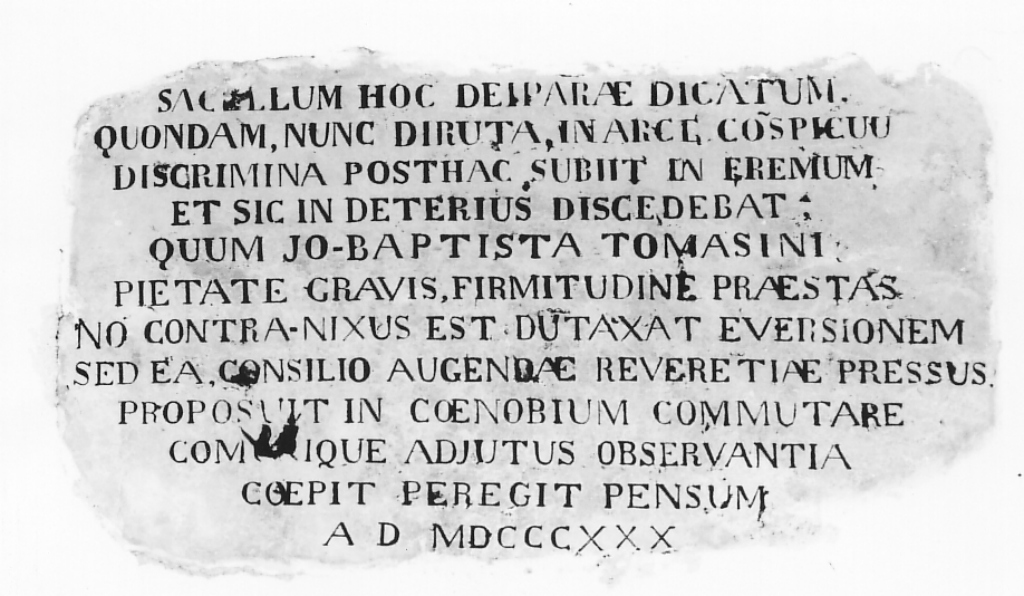 SACELLUM HOC DEIPARÆ DICATUM.
QUONDAM, NUNC DIRUTA, IN ARCE, CO͂SPICUU
DISCRIMINA POSTHAC SUBIIT IN EREMUM
ET SIC IN DETERIUS DISCEDEBAT :
QUUM JO-BAPTISTA TOMASINI
PIETATE GRAVIS, FIRMITUDINE PRAESTAS
NO CONTRA-NIXUS EST DUTAXAT EVERSIONEM
SED EA, CONSILIO AUGENDÆ REVERETIÆ PRESSUS.
PROPOSUIT IN CŒNOBIUM COMMUTARE
ADJUTUS OBSERVANTIA
CŒPIT PEREGIT PENSUM
A D MDCCCXXX